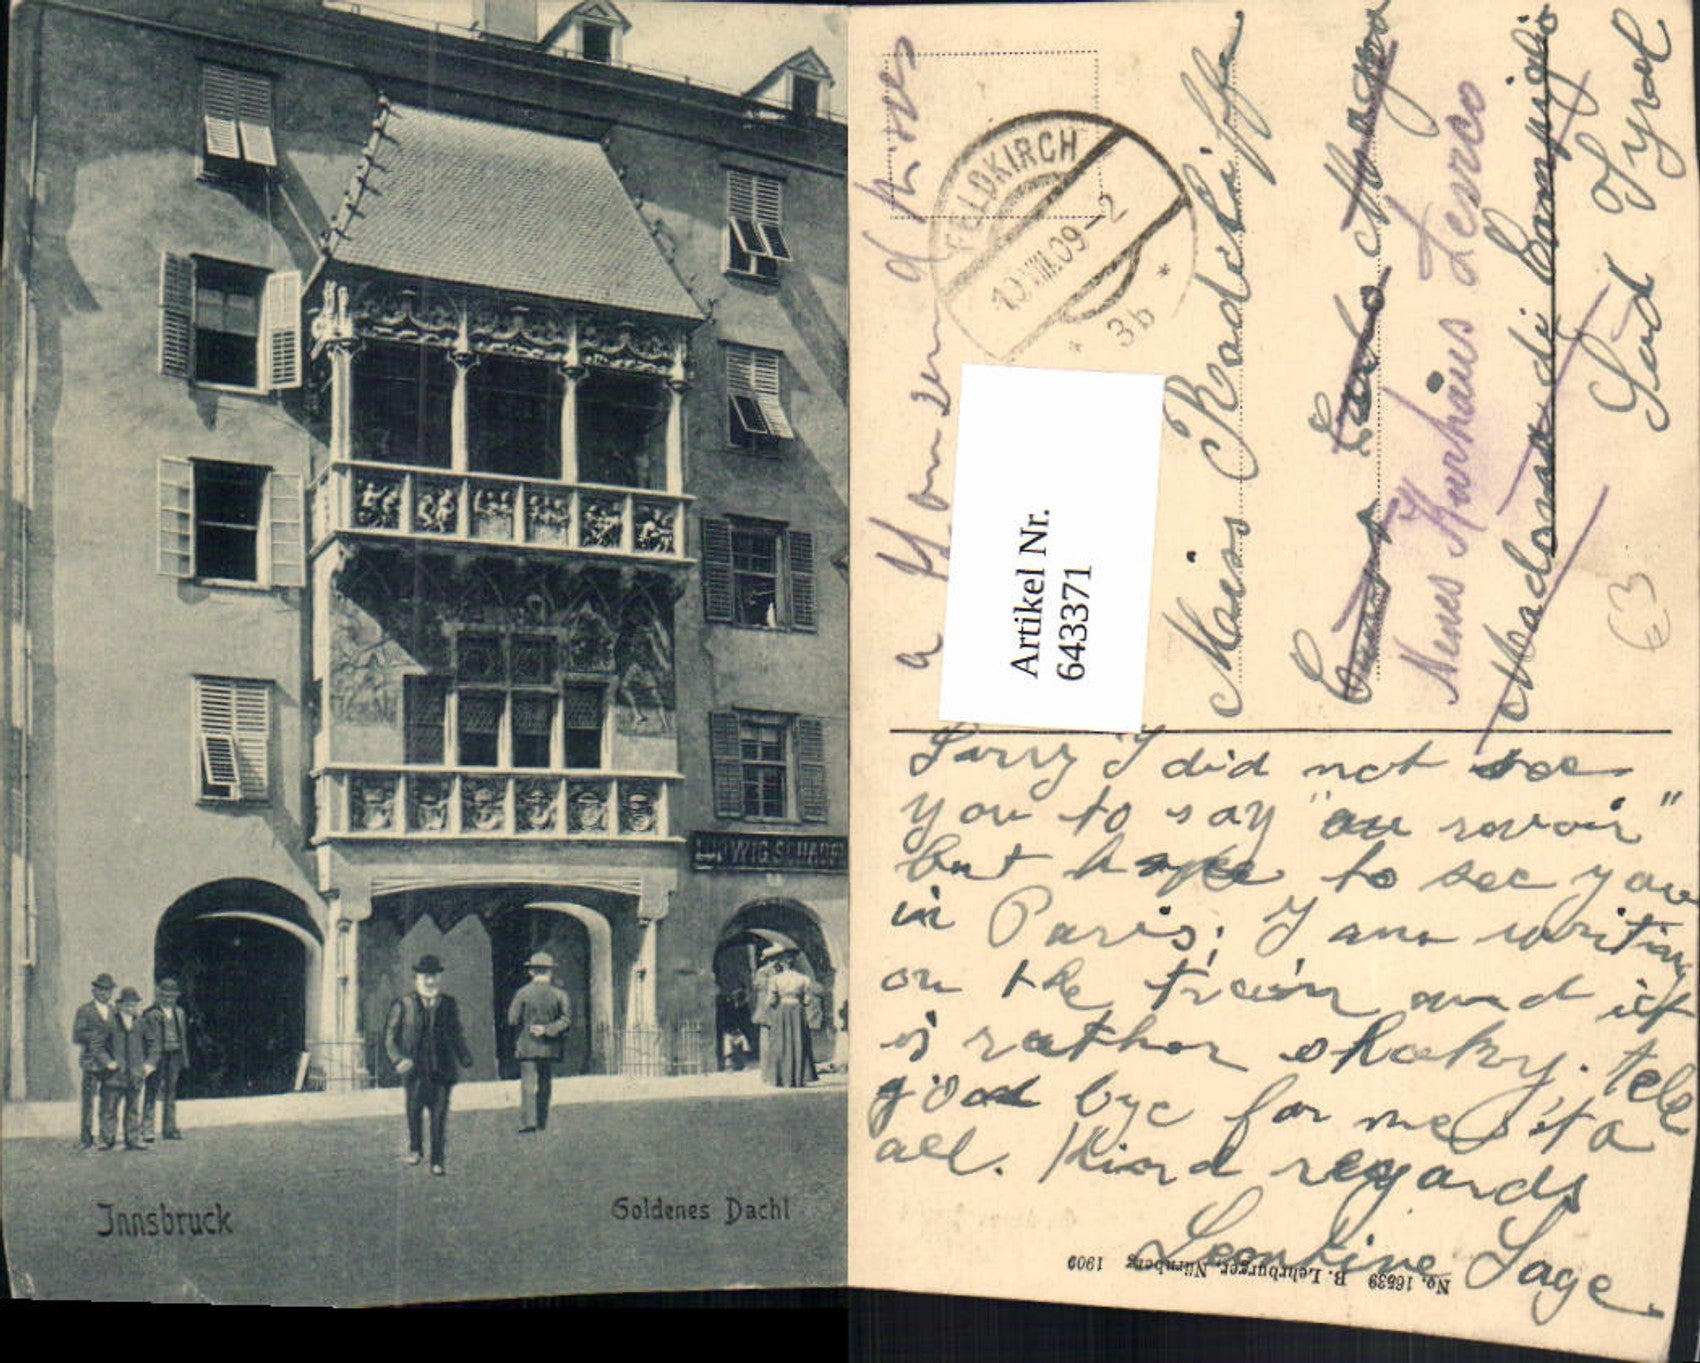 LUDWIG SCHADE
Innsbruck
Goldenes Dachl
FELDKIRCH
10.VIII.09-2
* 3b *
Artikel Nr.
643371
Miss Radcliffe
Lake
Neues Kurhaus Levico
Madonna di Campiglio
Süd Tyrol
63
Sorry I did not see
you to say "au revoir"
but hope to see you
in Paris; I am writing
on the train and it
is rather shaky. tell
good bye for me to
all. Kind regards
Leontine Sage.
No. 16539 B. Lehrburger, Nürnberg 1909